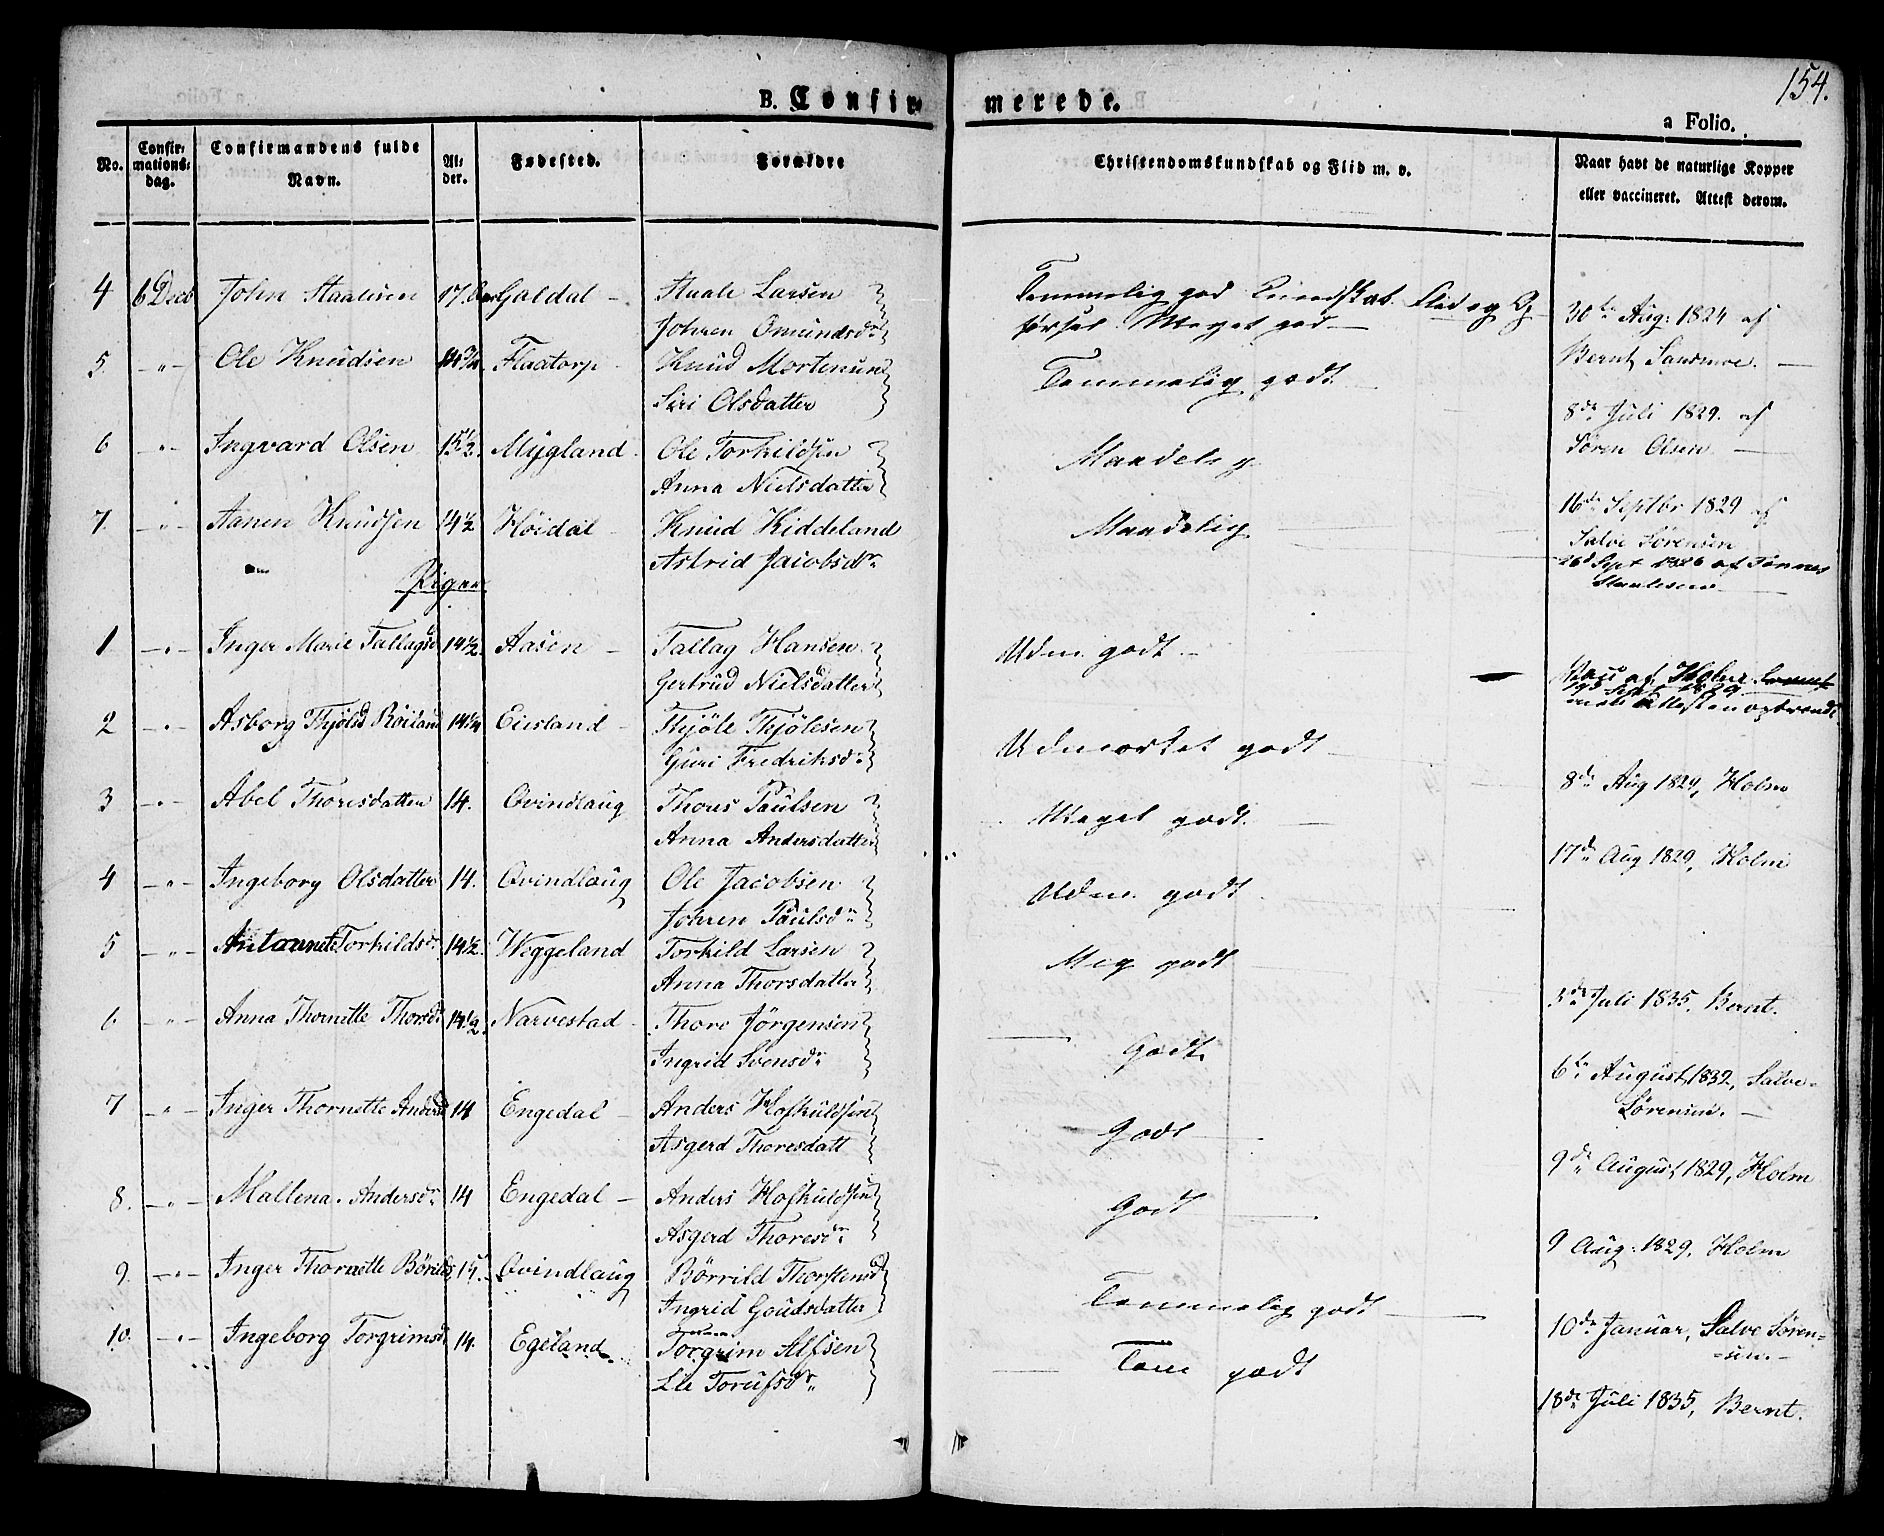 154.
B. Confir-
merede.
a Folio.
No.
Confir-
mations-
dag.
Confirmandens fulde
Navn.
Al-
der.
Fødested.
Forældre
Christendomskundskab og Flid m. v.
Naar havt de naturlige Kopper
eller vaccineret. Attest derom.
4 6 Decb John Staalesen 17 Galdal - Staale Larsen
Johren Omundsdr
Temmelig god Kundskab. Flid og
førsel. Meget god -
30te Aug: 1824 af
Bernt Sandmoe. -
5 -"- Ole Knudsen Flaatorp - Knud Mortensen
Siri Olsdatter
Temmelig godt. -
8de Juli 1829. af
Søren Olsen -
6 -"- Ingvard Olsen 15½. Mygland. Ole Torkildsen
Anna Nielsdatter
Maadelig
16de Septbr 1829 af
Salve Sørensen
7. -"- Aanen Knudsen 14½ Höidal - Knud Kiddeland
Astrid Jacobsdr
Maadelig
26d Sept 1826 af Tønnes
Staalesen
Piger
1 -"- Inger Marie Tallagsd 14½. Aasen - Tallag Hansen
Gertrud Nielsdatter
Udm. godt. -
2 -"- Asborg Thjølsd Röiland 14¼ Einsland - Thjöle Thjölesen
Guri Fredriksdr
Udmærket godt -
8de Aug 1829, Holm
3 -"- Abel Thoresdatter 14. Qvindlaug Thores Paulsen
Anna Andersdatter
Meget godt. -
17de Aug 1829, Holm
4 -"- Ingeborg Olsdatter 14. Qvindlaug Ole Jacobsen
Johren Paulsdr
Udm. godt.
5 -"- Antonnette Torkildsdr 14½. Weggeland Torkild Larsen
Anna Thorsdatter
Meg godt
3de Juli 1835, Bernt.
6. -"- Anna Thornette Thorsdr 14½. Narvestad - Thore Jörgensen
Ingrid Svensdr
Godt.
6te August, 1832, Salve
Sørensen. -
7 -"- Inger Thornette Andersd 14 Engedal - Anders Hofkuldsen
Asgerd Thoresdatt
Godt -
9de August, 1829, Holm
8. -"- Mallena. Andersdr 14 Engedal - Anders Hofkuldsen
Asgerd Thoresdr
Godt
9 Aug: 1829, Holm
9. -"- Inger Thornette Börilds Qvindlaug Börrild Thorstens
Ingrid Goudsdatter
Temmelig godt -
10de Januar, Salve Søren=
=sen. -
10. -"- Ingeborg Torgrimsd 14. Egeland Torgrim Alfsen
Lle Torufsdr
Tem godt
18de Juli 1835, Bernt.